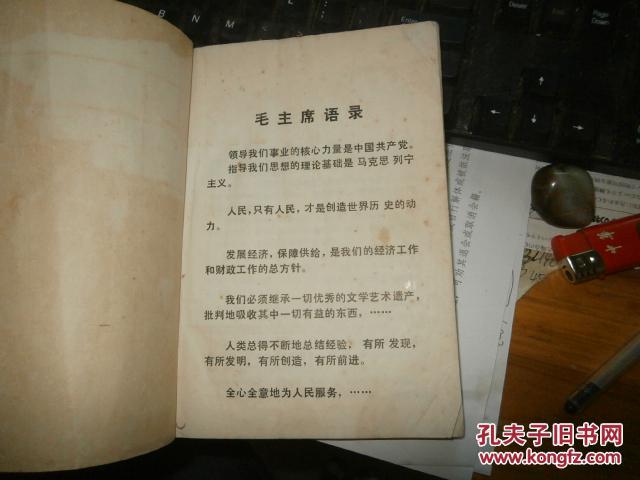 毛主席语录
领导我们事业的核心力量是中国共产党。
指导我们思想的理论基础是 马克思 列宁
主义。
人民,只有人民,才是创造世界历 史的动
力。
发展经济,保障供给,是我们的经济工作
和财政工作的总方针。
我们必须继承一切优秀的文学艺术遗产,
批判地吸收其中一切有益的东西,……
人类总得不断地总结经验, 有所 发现,
有所发明,有所创造,有所前进。
全心全意地为人民服务,……
孔夫子旧书网
www.kongfz.com